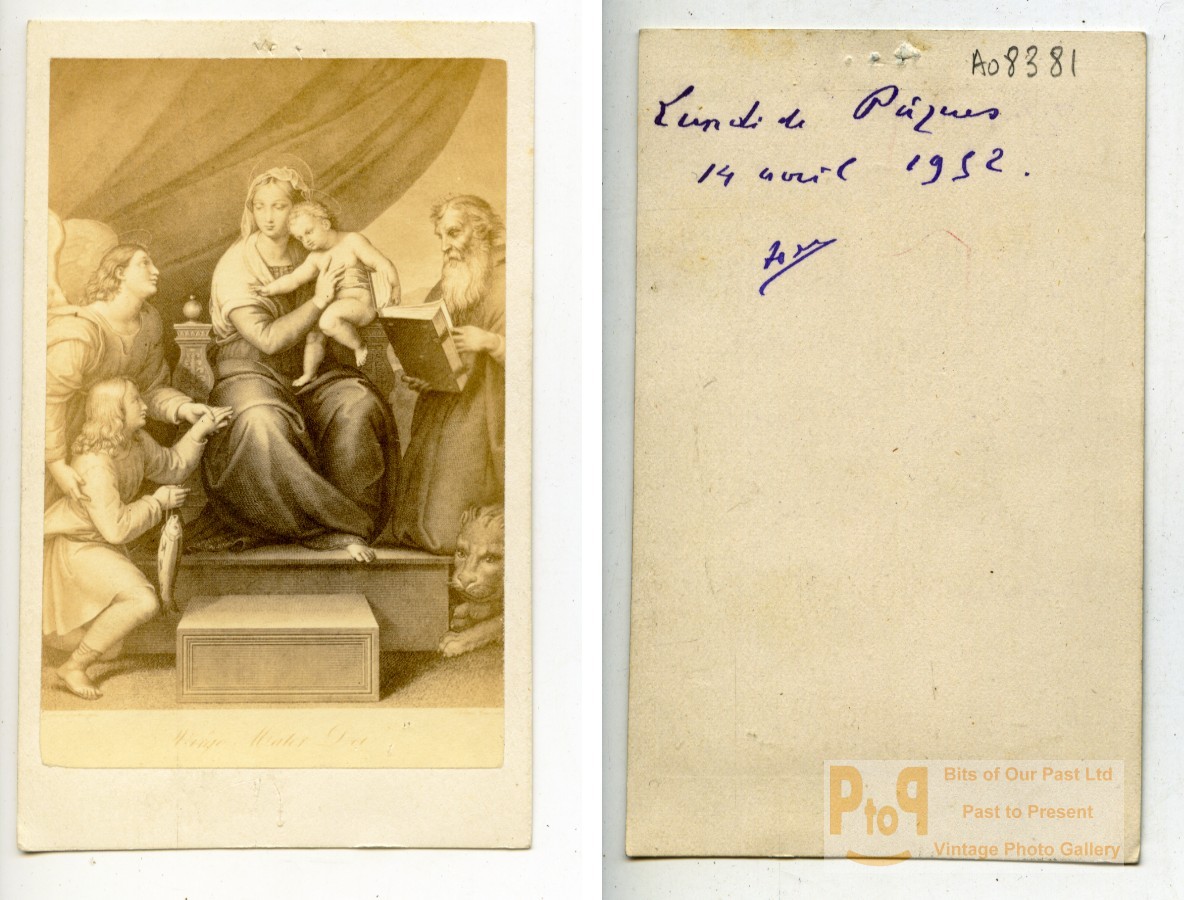 Virgo Mater Dei
A08381
Lundi de Pâques
14 avril 1952.
PtoP
Bits of Our Past Ltd
Past to Present
Vintage Photo Gallery